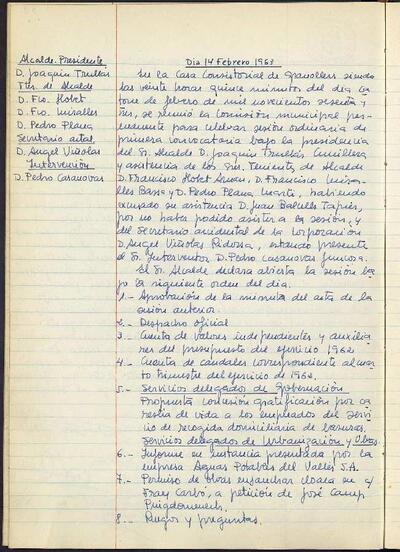 Alcalde. Presidente
D. Joaquin Trullás
Ttes. de Alcalde
D. Fco. Llobet
D. Fco. Miralles
D. Pedro Plana
Secretario actal,
D. Angel Viñolas
Intervención
D. Pedro Casanovas
Dia 14 Febrero 1963
En la Casa Consistorial de Granollers siendo
las veinte horas quince minutos del día ca
torce de febrero de mil novecientos sesenta y
tres, se reunió la Comisión municipal per-
manente para celebrar sesión ordinaria de
primera convocatoria bajo la presidencia
del Sr. Alcalde D. Joaquin Trullás
y asistencia de los Srs. Tenientes de Alcalde
D. Francisco Llobet D. Francisco Mira-
lles y D. Pedro Plana habiendo
excusado su asistencia D. Juan
por no haber podido asistir a la sesión, y
del Secretario accidental de la Corporación
D. Angel Viñolas estando presente
el Sr. Interventor D. Pedro Casanovas
El Sr. Alcalde declara abierta la sesión ba
jo la siguiente orden del día.
1.- Aprobación de la minuta del acta de la
sesión anterior.
2.- Despacho oficial
3.- Cuenta de valores independientes y auxilia-
res del presupuesto del ejercicio 1962
4.- Cuenta de caudales correspondiente al cuar
to trimestre del ejercicio de 1962.
5.- Servicios delegados de Gobernación
Propuesta concesión gratificación por ca
restia de vida a los empleados del servi
cio de recogida domiciliaria de basuras.
Servicios delegados de Urbanización y Obras.
6.- Informe en instancia presentada por la
empresa Aguas Potables del Vallés S.A.
7.- Permiso de obras ensanchar cloaca en c/
Fray Carbó, a petición de José Camp
Puigdomenech.
8.- Ruegos y preguntas.